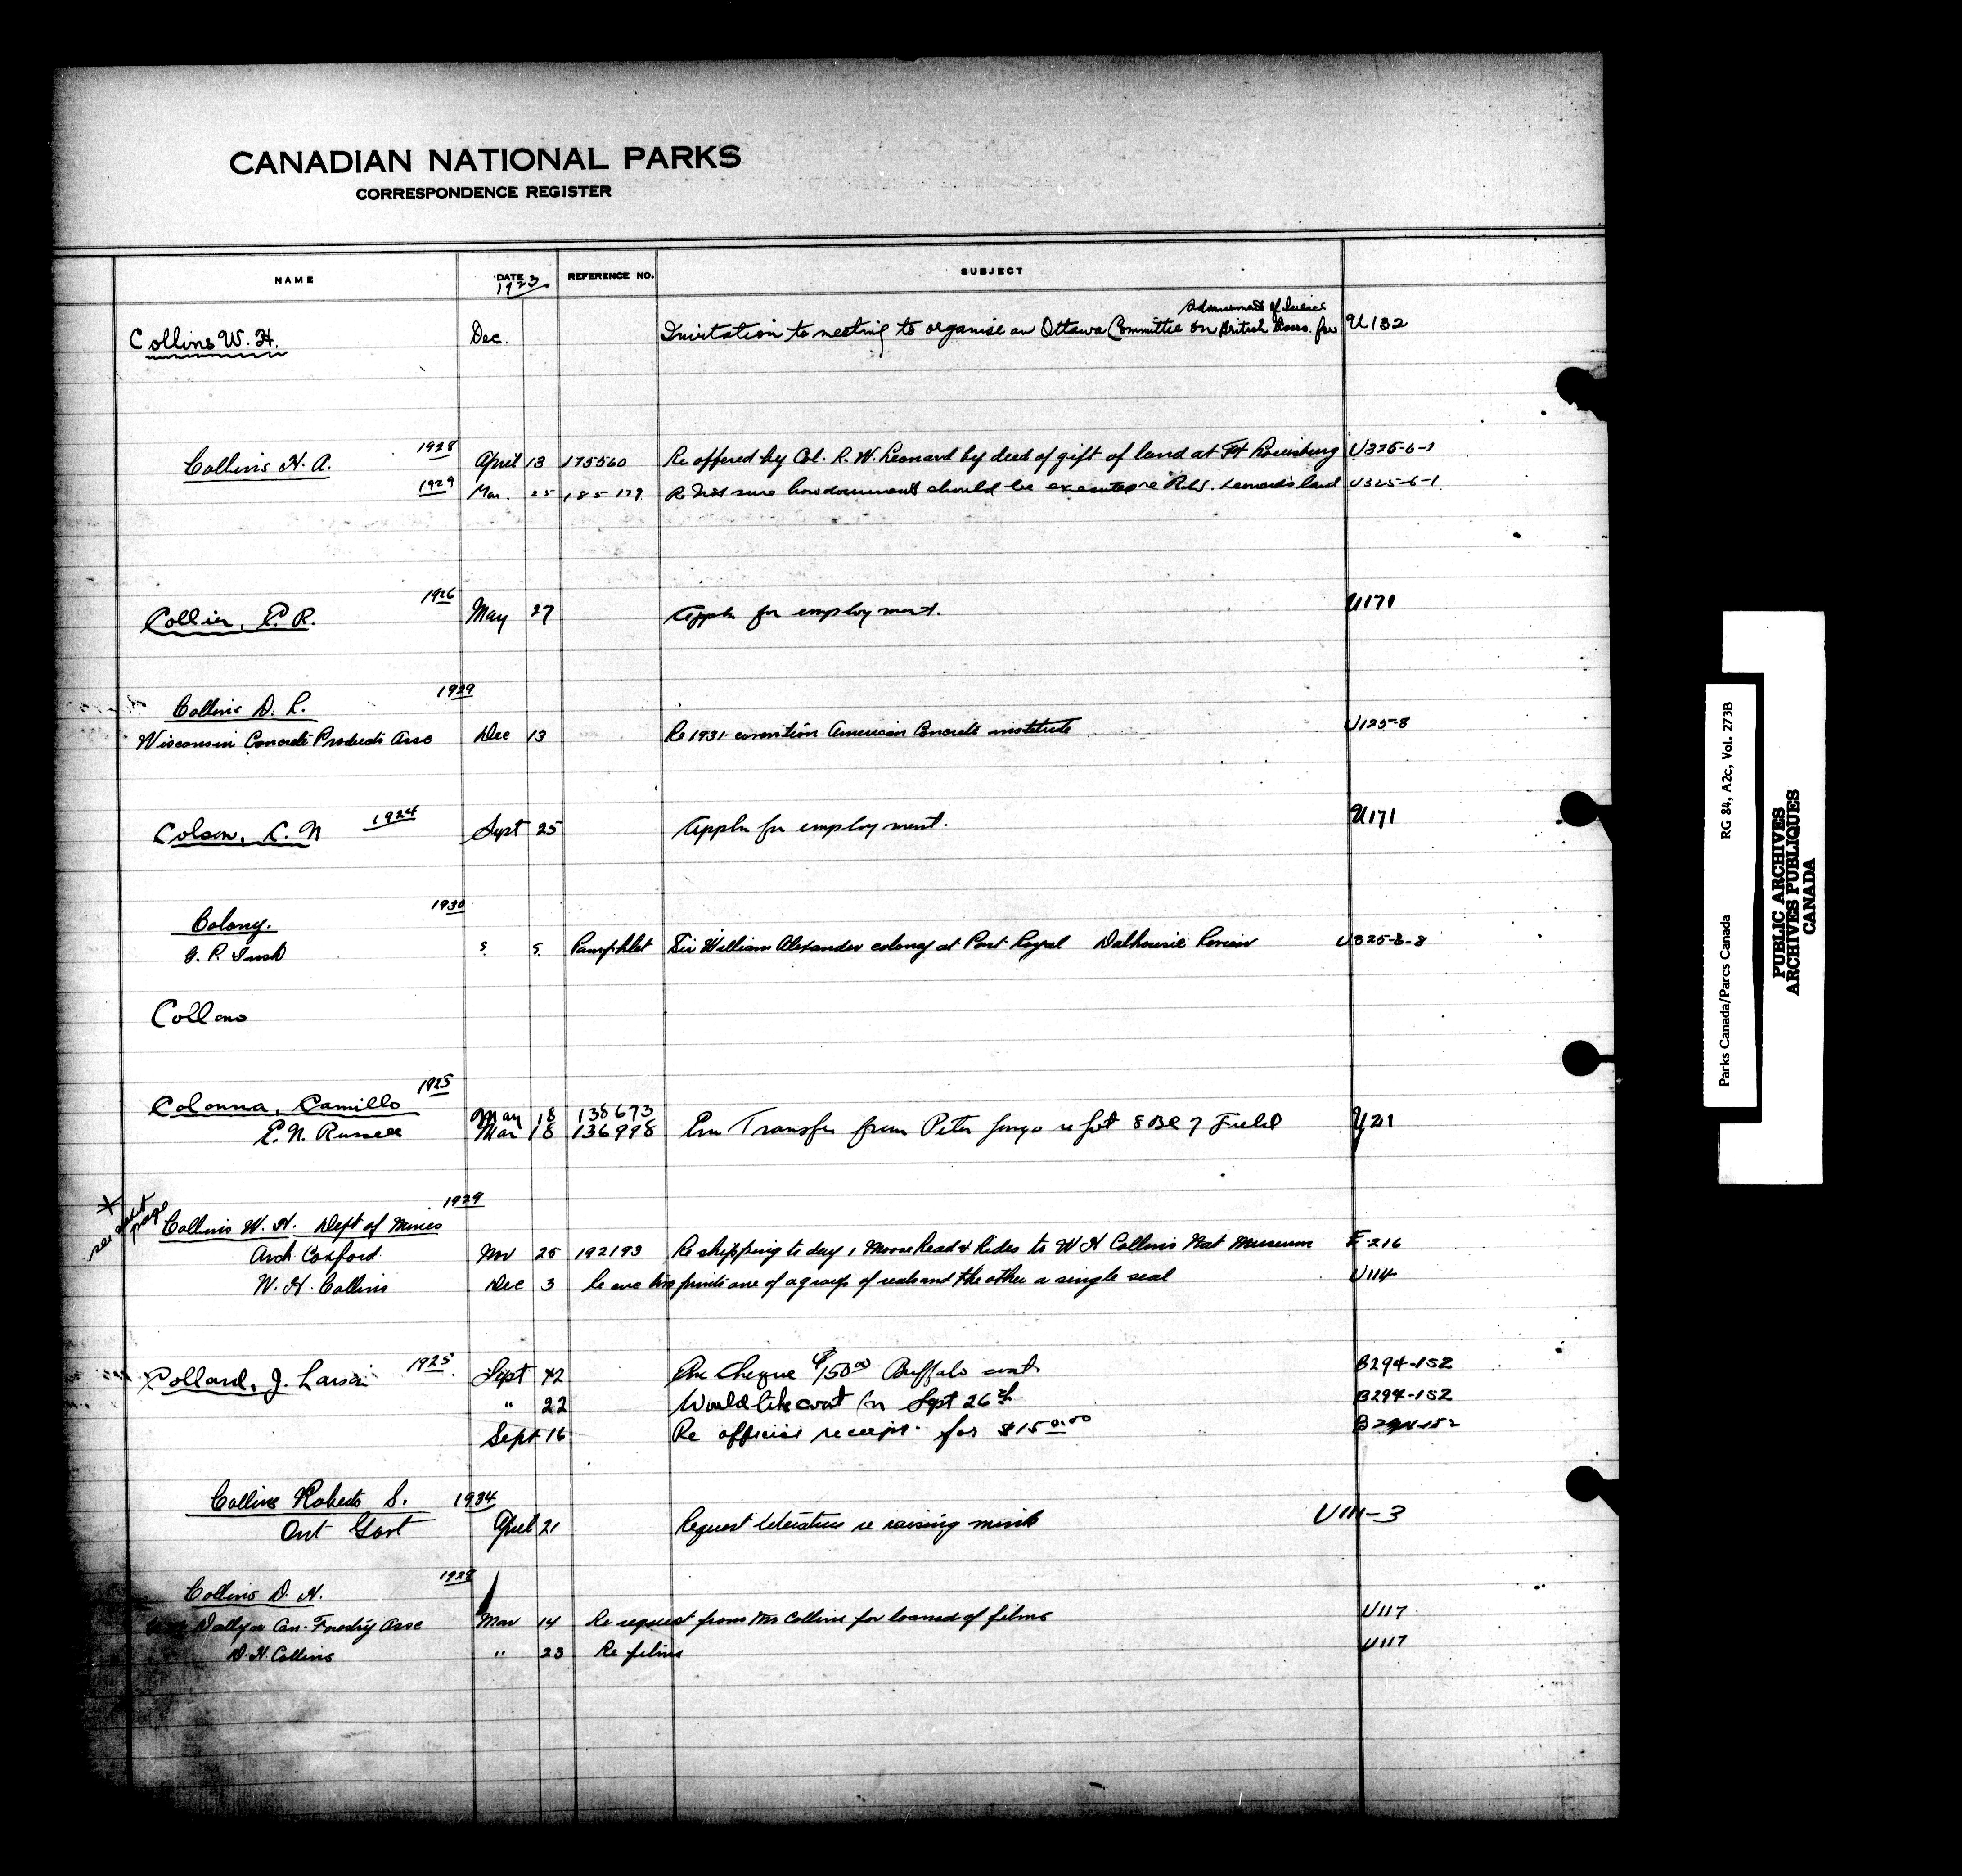 CANADIAN NATIONAL PARKS
CORRESPONDENCE REGISTER
NAME DATE REFERENCE NO. SUBJECT
1923
Advancement of Science
Collins W. H. Dec. Invitation to meeting to organise an Ottawa Committee on British Assoc. for U132
Collins H. A. 1928 April 13 175560 Re offered by Col. R. W. Leonard by deed of gift of land at Ft U325-6-1
1929 Mar. 25 185179 Re Not sure how document should be execute re R.W. Leonard's land U325-6-1
Collier, E. R. 1926 May 27 Appln for employment. U171
Collins D. R. 1929
Wisconsin Concrete Products Assc Dec 13 Re 1931 convention American Concrete institute U125-8
Colson, C. N 1924 Sept 25 Appln for employment. U171
Colony. 1930
G. P. Insh ? ? Pamphlet Sir William Alexander colony at Port Royal Dalhousie Review U325-8-8
Collano
Colonna, Camillo 1925 May 18 138673
E. N. Russell Mar 18 136998 Em Transfer from Peter re Lot 8 Bl 7 Field Y21
* see next page
Collins W. H. Dept of Mines 1929
Arch. Coxford Nov 25 192193 Re shipping to day 1 Moose head & hides to W H Collins Nat Museum E 216
W. H. Collins Dec 3 Re two prints one of a group of seals and the other a single seal U114
Collard, J. 1925 Sept 42 Re Cheque $150.00 Buffalo coat B294-152
" 22 Would like coat for Sept 26th B294-152
Sept 16 Re official receipt for $150.00 B294-152
Collins Roberts S. 1934
Ont Govt April 21 Request literature re raising mink U111-3
Collins D. H. 1928
Can. Forestry Assc Mar 14 Re request from Mr Collins for loaned of films U117
D. H. Collins " 23 Re films U117
Parks Canada/Parcs Canada RG 84, A2c, Vol. 273B
PUBLIC ARCHIVES
ARCHIVES PUBLIQUES
CANADA